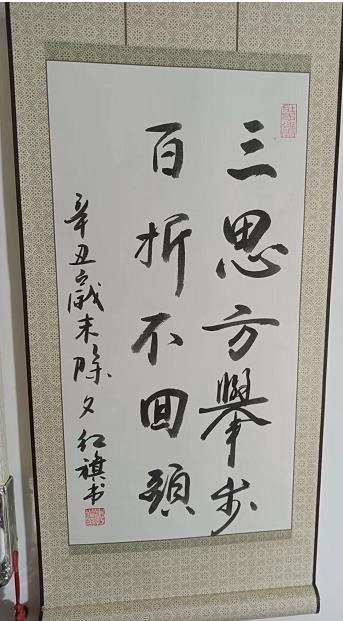 三思方舉步
百折不回頭
辛丑歲末除夕紅旗书